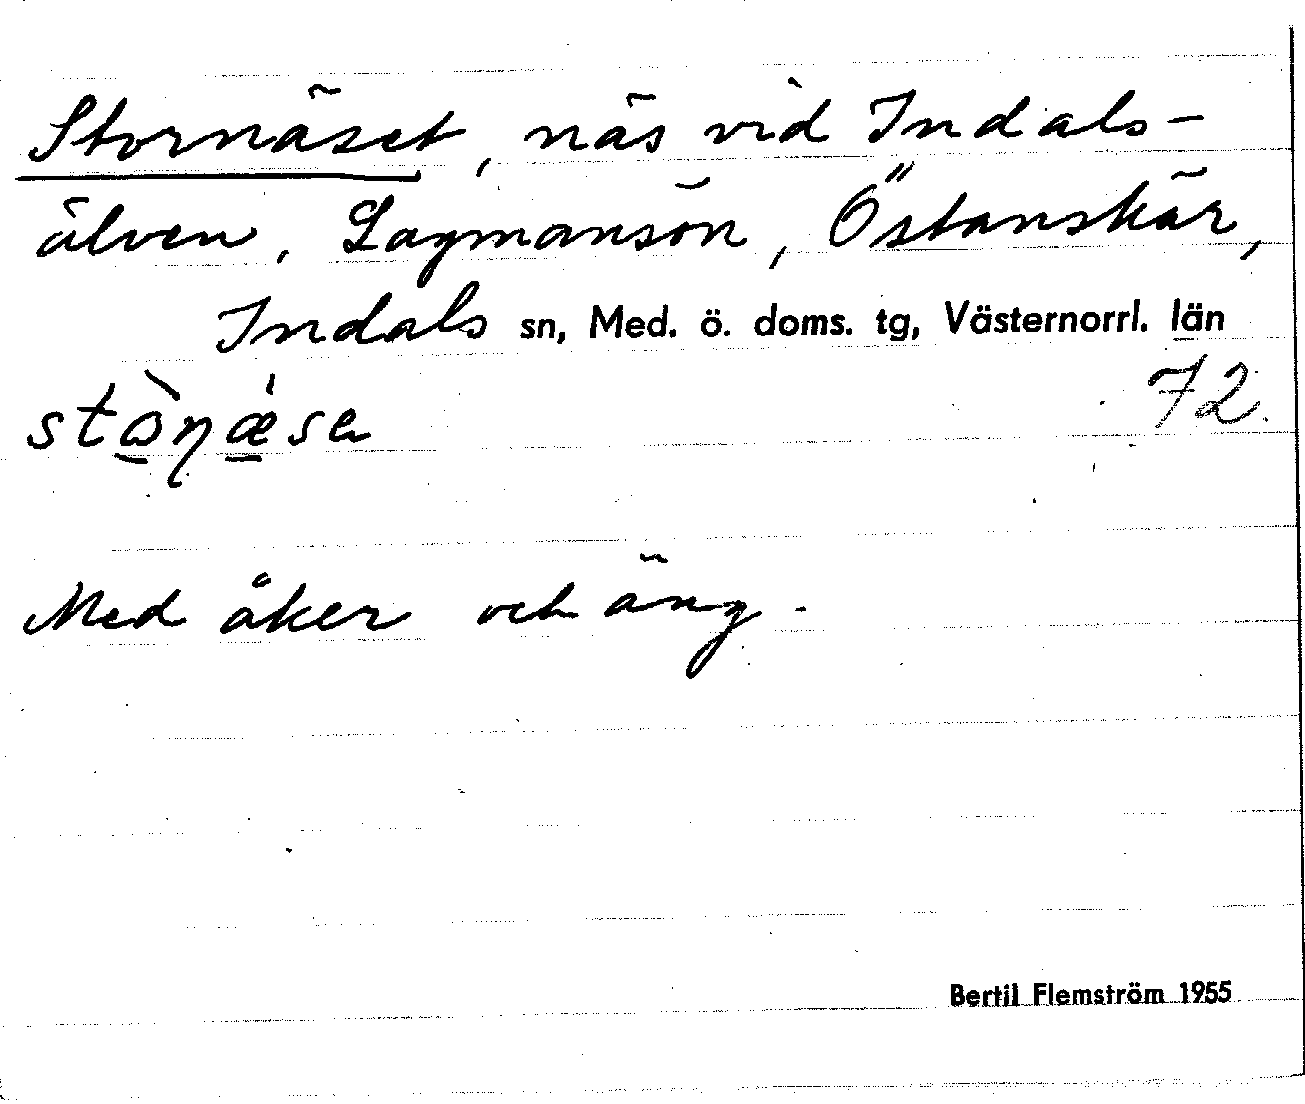 Stornäset, näs vid Indals-
älven, Lagmansön, Östanskär,
Indals sn, Med. ö. doms. tg, Västernorrl. län
72.
Med åker och äng.
Bertil Flemström 1955